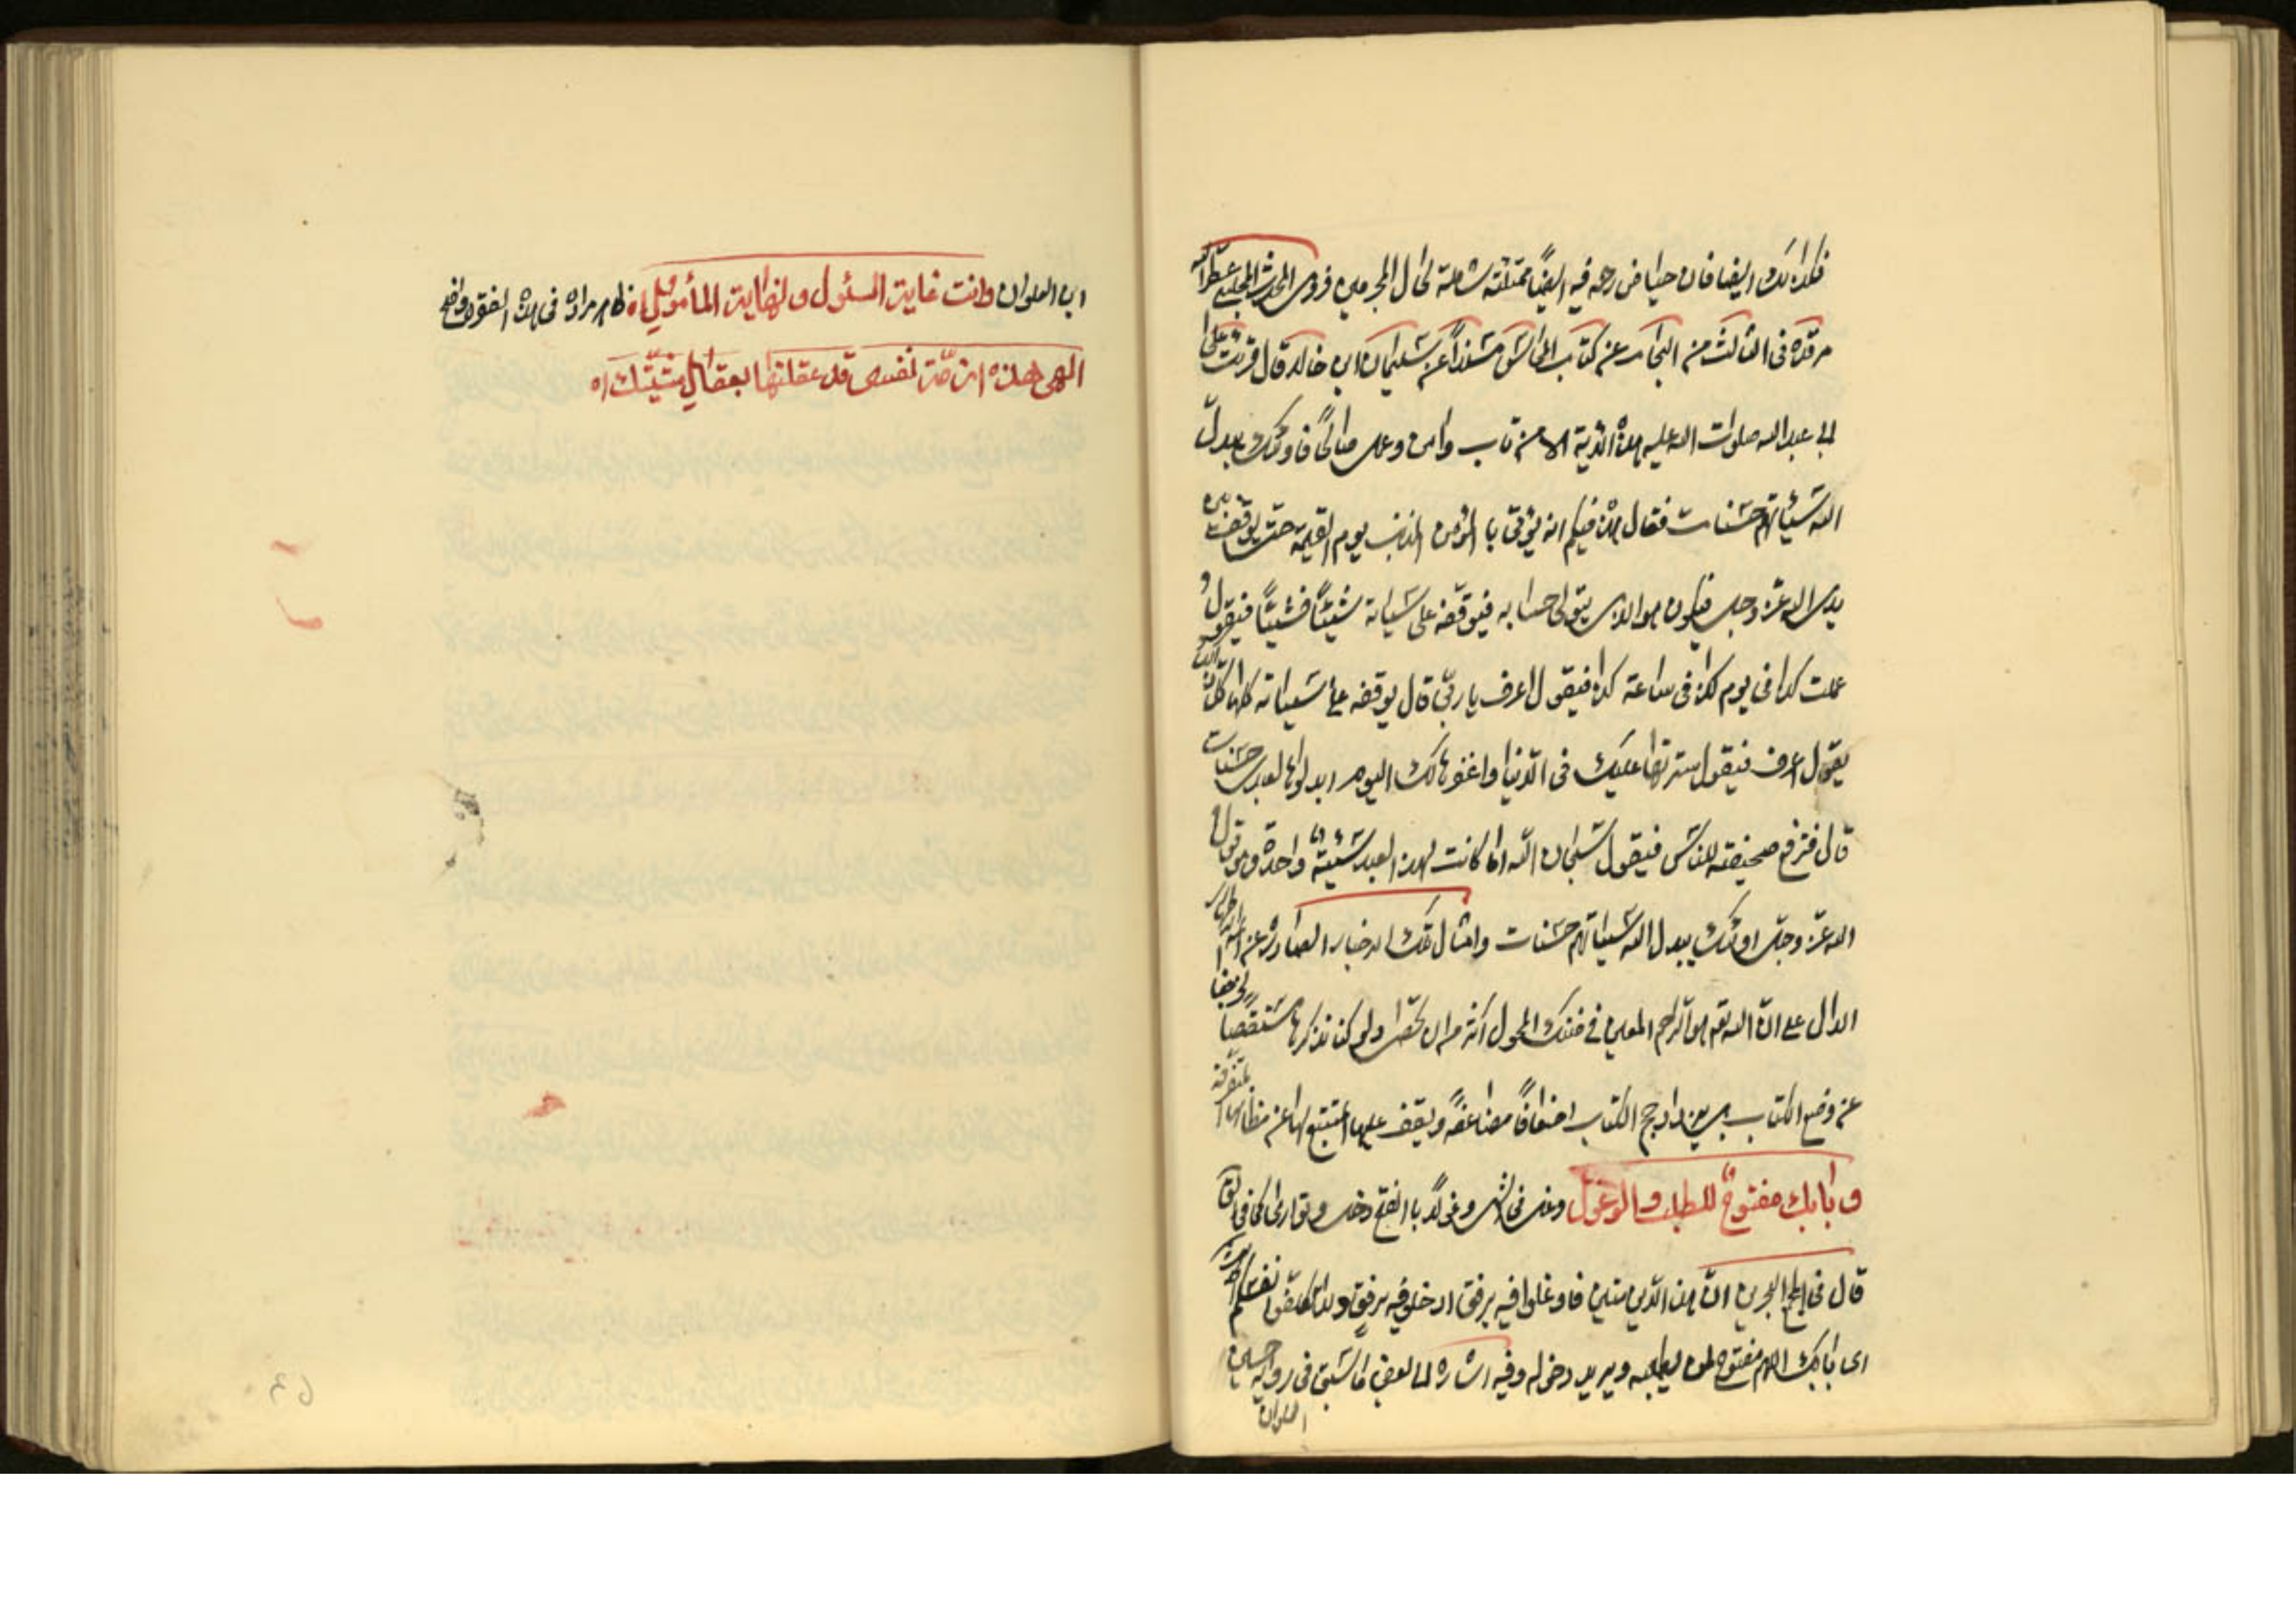 فكذلك ايضا فان حياض رحمه فيه ايضًا ممتلئة شاملة لحال المجرمين فروى المحدث المجلسى عطّر الله
مرقده فى الثالث من البحار عن كتاب المحاسن مسنداً عن سليمان ابن خالد قال قرئت على
ابى عبد الله صلوات الله عليه هذه الاية الا من تاب وامن وعمل صالحًا فاولئك يبدل
الله سيئاتهم حسنات فقال هذه فيكم انه يؤتى بالمؤمن المذنب يوم القيمة حتى يوقف بين
يدى الله عزّ وجل فيكون هو الذى يتولى حسابه فيوقفه على سيئاته شيئًا فشيئًا فيقول
عملت كذا فى يوم كذا فى ساعة كذا فيقول اعرف يا ربّى قال حتى يوقفه على سيئاته كلها كل ذلك
يقول اعرف فيقول سترتها عليك فى الدنيا واغفرها لك اليوم ابدلوها لعبدى حسنات
قال فترفع صحيفته للناس فيقول سبحان الله اما كانت لهذا العبد سيئة واحدة وهو قول
الله عزّ وجلّ اولئك يبدل الله سيئاتهم حسنات وامثال تلك الاخبار الصادرة عن ائمة الاطهار
الدال على انّ الله تعـ هو الراحم المعين فى ضنك المحول اكثر من ان تحصى ولو كنا نذكرها مستقصيا لخرجنا
عن وضع الكتاب بل يزداد حجم الكتاب اضعافًا مضاعفة ويقف عليها المتتبع لها عن مظانها المتفرقة
وبابك مفتوحٌ للطلب والوغول وغل فى الشى وغولًا بالفتح دخل وتوارى كما فى لق
قال فى مجمع البحرين انّ هذا الدين متين فاوغلوا فيه برفق ادخلوا فيه برفق
اى بابك اللهم مفتوح لمن يطلبه ويريد دخوله وفيه اشارة لما سبق فى رواية حسين
ابن العلوان وانت غاية السئول ونهاية المأمول اه ظاهر مراده فى هذه الفقرة واضح
الهى هذه ازمّة نفسى قد عقلتها بعقال مشيّتك اه